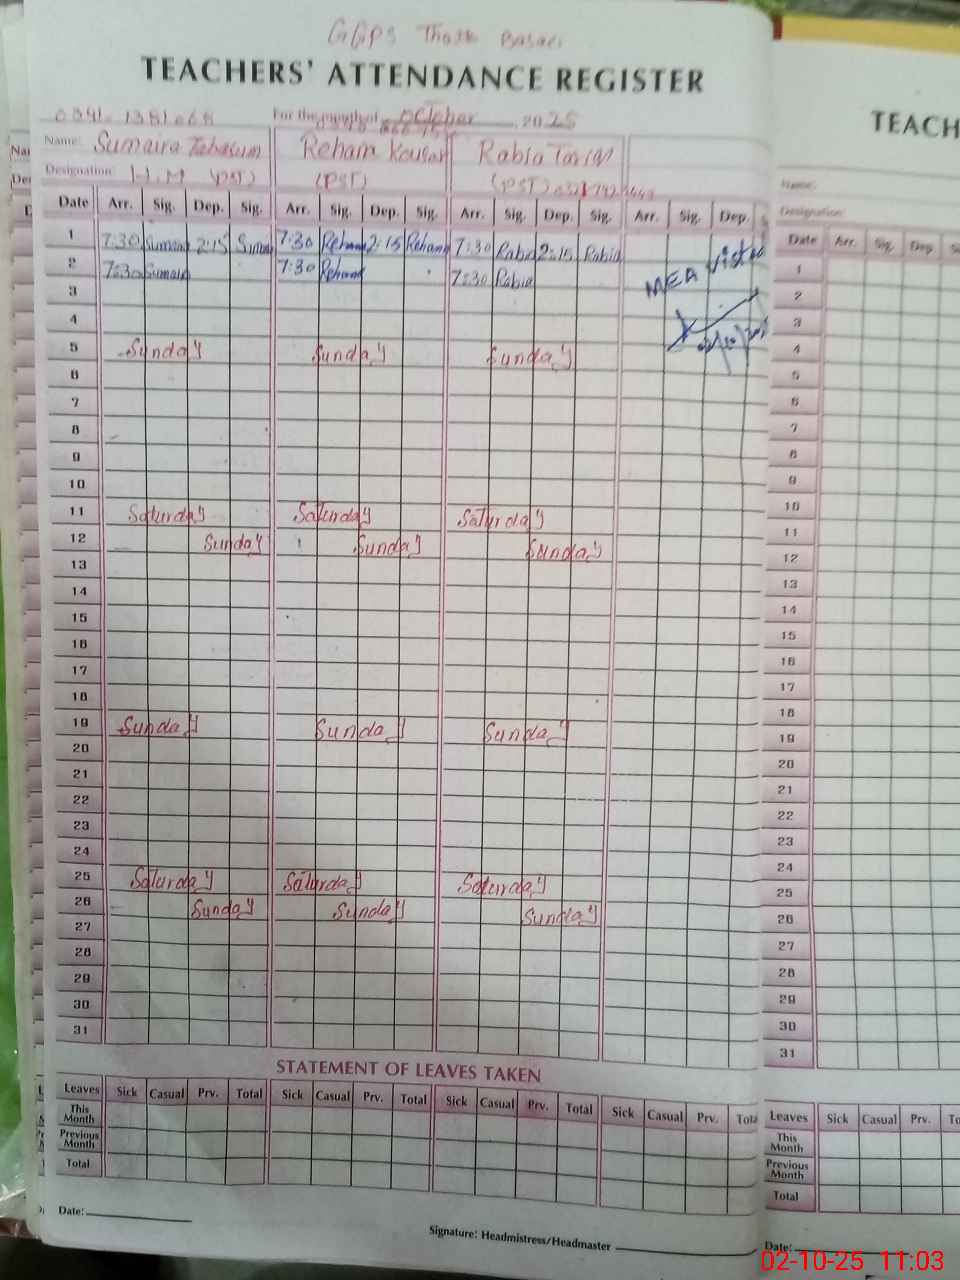 GGPS
TEACHERS' ATTENDANCE REGISTER
For the month of October, 2025
Name: Sumaira Tabasum Reham Kousar Rabia Tariq
Designation: H.M (PST) (PST) (PST)
Date Arr. Sig. Dep. Sig. Arr. Sig. Dep. Sig. Arr. Sig. Dep. Sig. Arr. Sig. Dep.
1 7:30 Sumaira 2:15 7:30 Reham 2:15 Reham 7:30 Rabia 2:15 Rabia
2 7:30 Sumaira 7:30 Reham 7:30 Rabia
MEA Visited
3
4
5 Sunday Sunday Sunday
6
7
8
9
10
11 Saturday Saturday Saturday
12 Sunday Sunday Sunday
13
14
15
16
17
18
19 Sunday Sunday Sunday
20
21
22
23
24
25 Saturday Saturday Saturday
26 Sunday Sunday Sunday
27
28
29
30
31
STATEMENT OF LEAVES TAKEN
Leaves Sick Casual Prv. Total Sick Casual Prv. Total Sick Casual Prv. Total Sick Casual Prv.
This Month
Previous Month
Total
Date:
Signature: Headmistress/Headmaster
TEACH
Name:
Designation:
Date Arr. Sig. Dep.
1
2
3
4
5
6
7
8
9
10
11
12
13
14
15
16
17
18
19
20
21
22
23
24
25
26
27
28
29
30
31
Leaves Sick Casual Prv.
This Month
Previous Month
Total
Date:
02-10-25 11:03